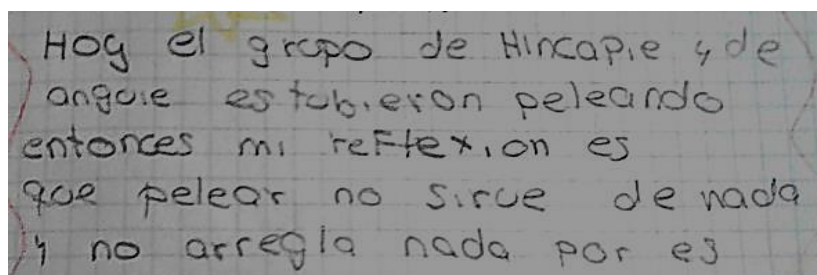 Hoy el grupo de Hincapie y de
anguie estubieron peleando
entonces mi reflexion es
que pelear no sirve de nada
y no arregla nada por es